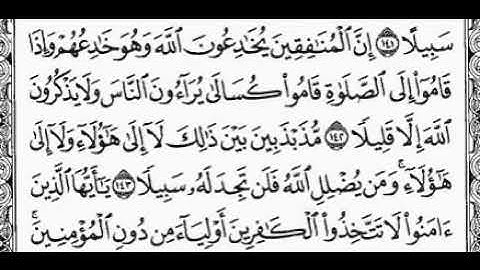 سَبِيلًا ١٤١ إِنَّ ٱلْمُنَٰفِقِينَ يُخَٰدِعُونَ ٱللَّهَ وَهُوَ خَٰدِعُهُمْ وَإِذَا
قَامُوٓا۟ إِلَى ٱلصَّلَوٰةِ قَامُوا۟ كُسَالَىٰ يُرَآءُونَ ٱلنَّاسَ وَلَا يَذْكُرُونَ
ٱللَّهَ إِلَّا قَلِيلًا ١٤٢ مُّذَبْذَبِينَ بَيْنَ ذَٰلِكَ لَآ إِلَىٰ هَٰٓؤُلَآءِ وَلَآ إِلَىٰ
هَٰٓؤُلَآءِ ۚ وَمَن يُضْلِلِ ٱللَّهُ فَلَن تَجِدَ لَهُۥ سَبِيلًا ١٤٣ يَٰٓأَيُّهَا ٱلَّذِينَ
ءَامَنُوا۟ لَا تَتَّخِذُوا۟ ٱلْكَٰفِرِينَ أَوْلِيَآءَ مِن دُونِ ٱلْمُؤْمِنِينَ ۚ